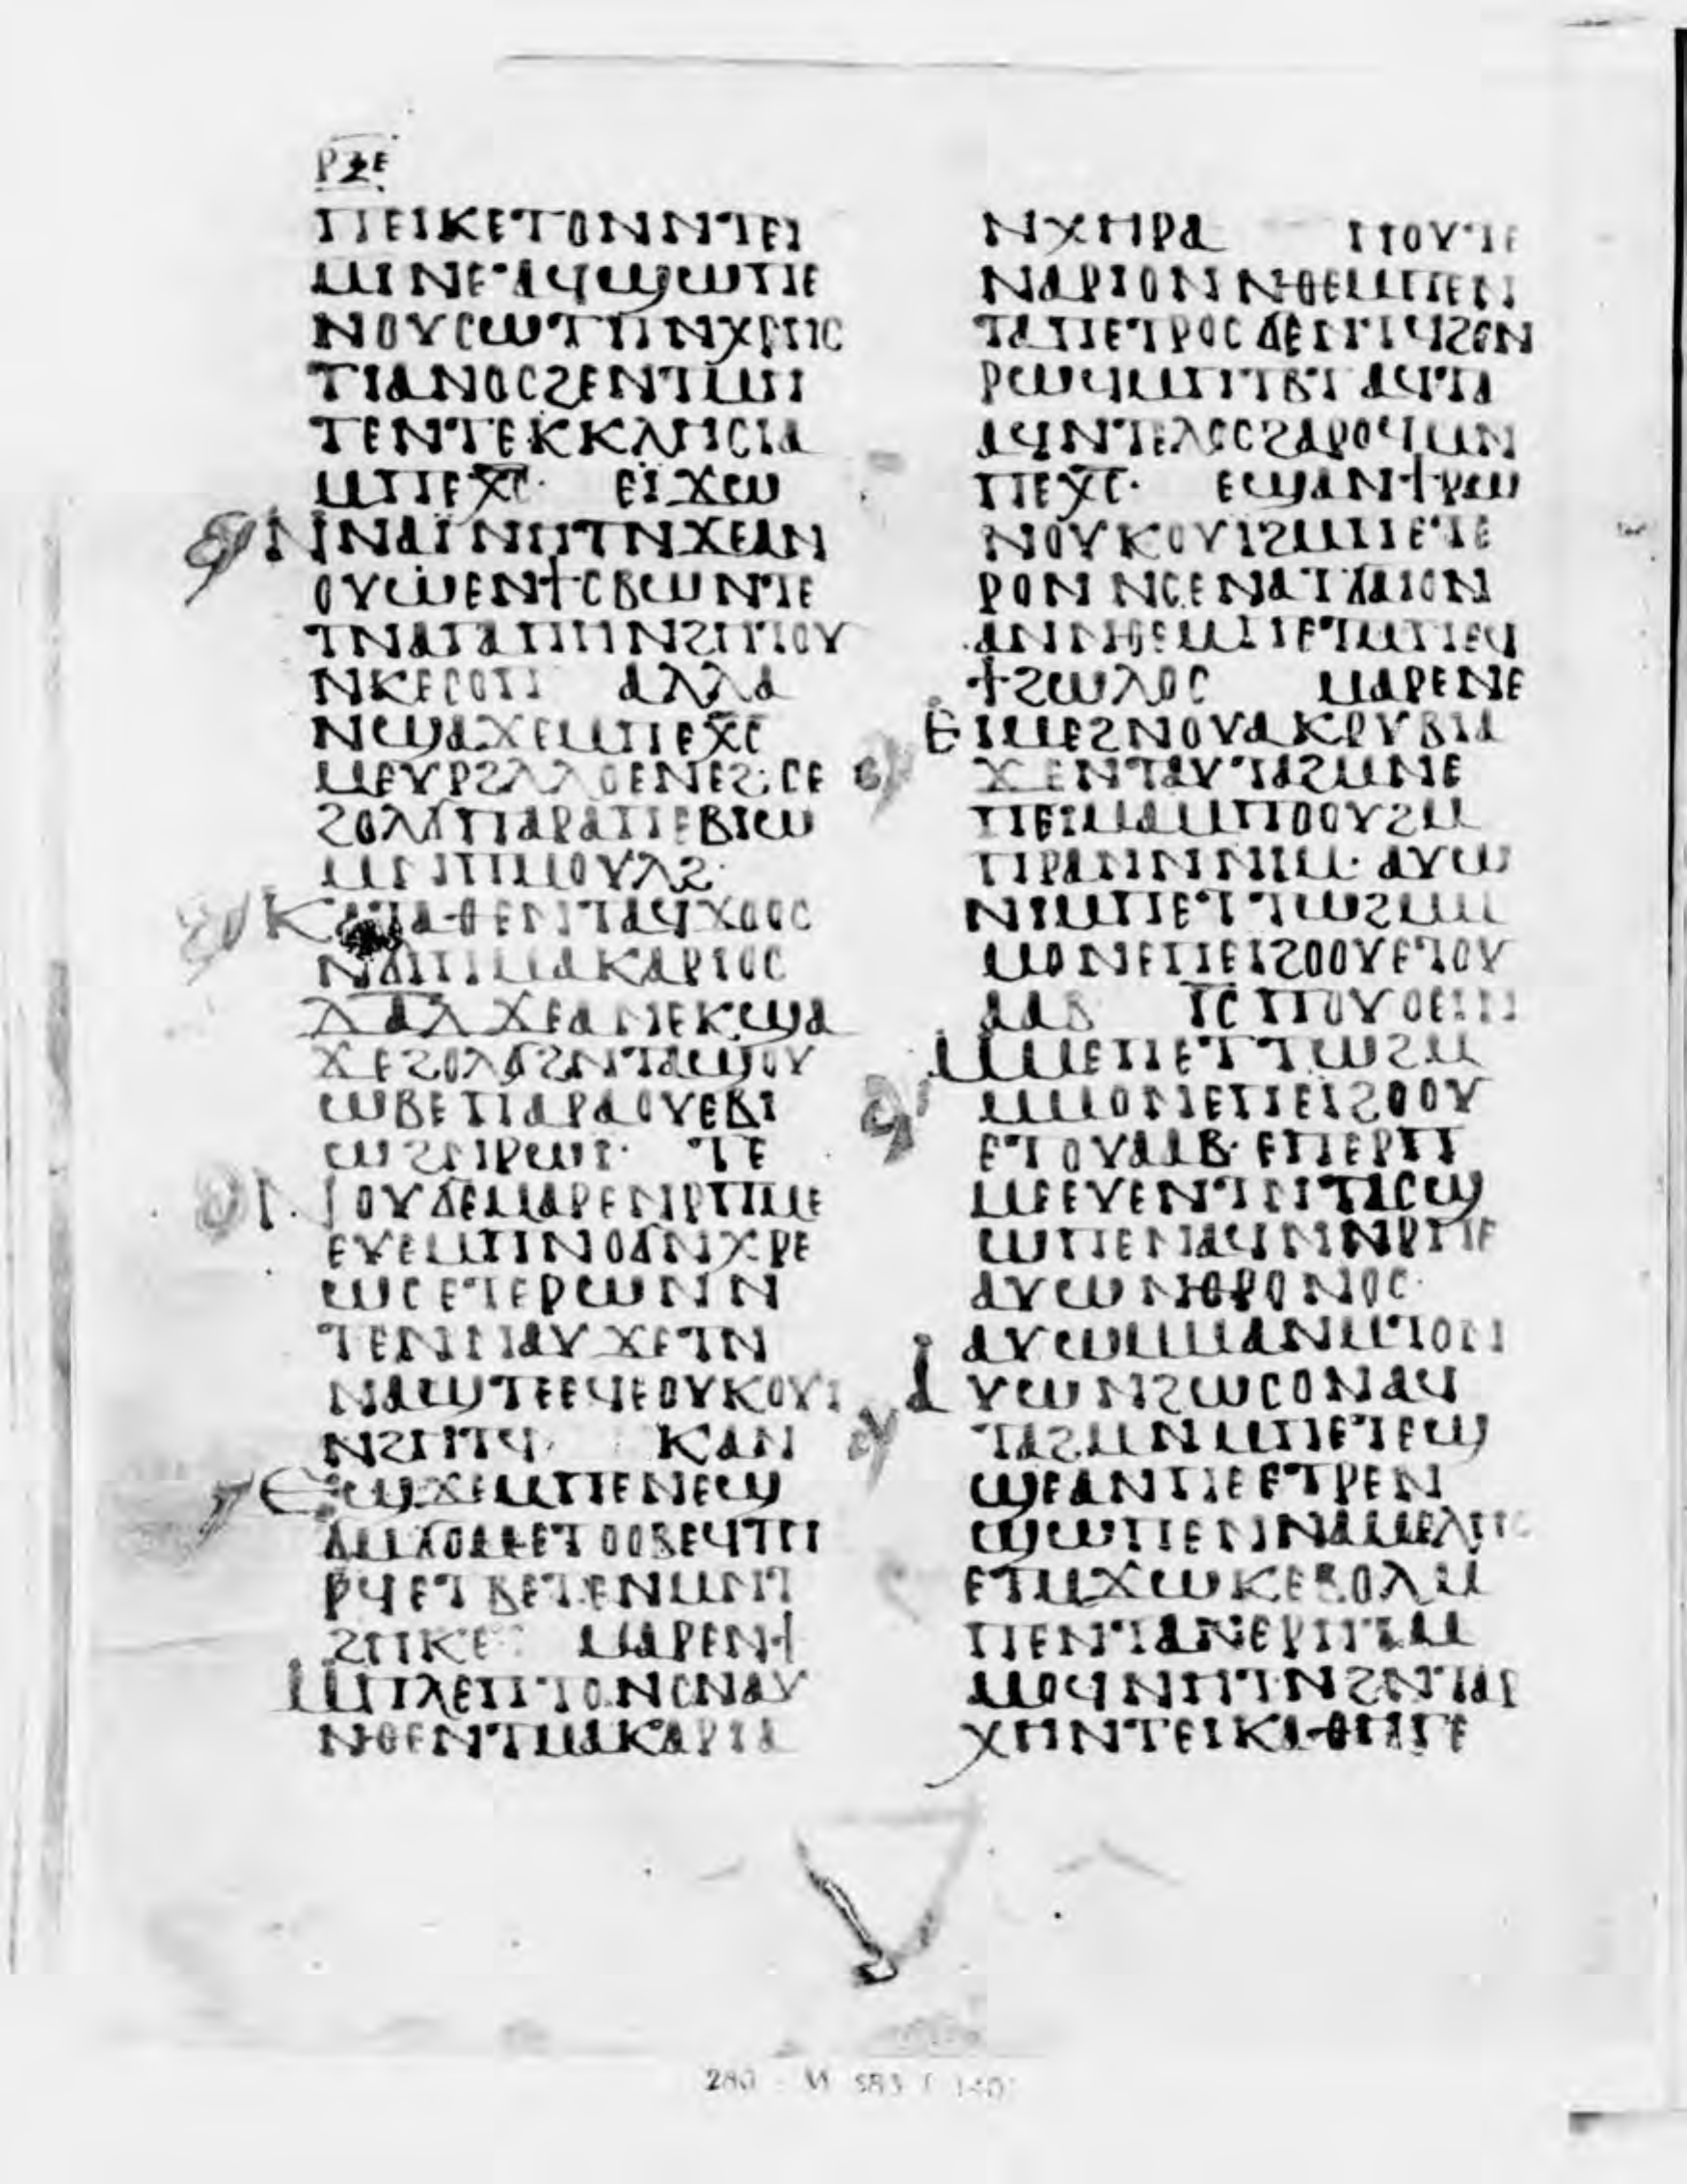 ⲣⲝⲉ
ⲡⲉⲓⲕⲉⲧⲟⲛⲛⲧⲉⲓ
ⲙⲓⲛⲉ·ⲁϥϣⲱⲡⲉ
ⲛⲟⲩⲥⲱⲧⲡⲛⲭⲣⲏⲥ
ⲧⲓⲁⲛⲟⲥϩⲉⲛⲧⲙⲏ
ⲧⲉⲛⲧⲉⲕⲕⲗⲏⲥⲓⲁ
ⲙⲡⲉⲭ̅ⲥ̅· ⲉⲓϫⲱ
ⲛⲛⲁⲓⲛⲏⲧⲛϫⲉⲁⲛ
ⲟⲩⲱϣⲉⲛϯⲥⲃⲱⲛⲧⲉ
ⲧⲛⲁⲅⲁⲡⲏⲛϩⲏⲧⲟⲩ
ⲛⲕⲉⲥⲟⲡ ⲁⲗⲗⲁ
ⲛϣⲁϫⲉⲙⲡⲉⲭ̅ⲥ̅
ⲙⲉⲩⲣϩⲗⲗⲟⲉⲛⲉϩ·ⲥⲉ
ϩⲟⲗϭⲡⲁⲣⲁⲡⲉⲃⲓⲱ
ⲙⲛⲡⲙⲟⲩⲗϩ·
ⲕⲁⲧⲁⲑⲉⲛⲧⲁϥϫⲟⲟⲥ
ⲛϭⲓⲡⲙⲁⲕⲁⲣⲓⲟⲥ
ⲇⲁⲇ ϫⲉⲁⲛⲉⲕϣⲁ
ϫⲉϩⲟⲗϭϩⲛⲧⲁϣⲟⲩ
ⲱⲃⲉⲡⲁⲣⲁⲟⲩⲉⲃⲓ
ⲱϩⲛⲣⲱⲓ· ⲧⲉ
ⲛⲟⲩⲇⲉⲙⲁⲣⲉⲛⲣⲡⲙⲉ
ⲉⲩⲉⲙⲡⲛⲟϭⲛⲭⲣⲉ
ⲱⲥⲉⲧⲉⲣⲱⲛⲛ
ⲧⲉⲛⲛⲁⲩ ϫⲉⲧⲛ
ⲛⲁϣⲧⲉⲉϥⲉⲟⲩⲕⲟⲩⲓ
ⲛϩⲏⲧϥ· ⲕⲁⲛ
ⲉϣϫⲉⲙⲡⲉⲛⲉϣ
ϭⲙϭⲟⲙⲉⲧⲟⲟⲃⲉϥⲧⲏ
ⲣϥⲉⲧⲃⲉⲧⲉⲛⲙⲛⲧ
ϩⲏⲕⲉ· ⲙⲁⲣⲉⲛϯ
ⲙⲡⲗⲉⲡⲧⲟⲛⲥⲛⲁⲩ
ⲛⲑⲉⲛⲧⲙⲁⲕⲁⲣⲓⲁ
ⲛⲭⲏⲣⲁ ⲡⲟⲩⲇⲉ
ⲛⲁⲣⲓⲟⲛⲛⲑⲉⲙⲡⲉⲛ
ⲧⲁⲡⲉⲧⲣⲟⲥϭⲉⲛⲧϥϩⲉⲛ
ⲣⲱϥⲙⲡⲧⲃⲧ ⲁϥⲧⲁ
ⲁϥⲛⲧⲉⲗⲟⲥϩⲁⲣⲟϥⲙⲛ
ⲡⲉⲭ̅ⲥ̅· ⲉϣⲁⲛϯⲣⲱ
ⲛⲟⲩⲕⲟⲩⲓϩⲙⲡⲉⲧⲉ
ⲣⲟⲛ ⲛⲥⲉⲛⲁϭⲁⲓⲟⲛ
ⲁⲛⲛⲑⲉⲙⲡⲉⲧⲙⲡⲉϥ
ϯϩⲱⲗⲟⲥ ⲙⲁⲣⲉⲛⲉ
ⲓⲙⲉϩⲛⲟⲩⲁⲕⲣⲩⲃⲓⲁ
ϫⲉⲛⲧⲁⲩⲧⲁϩⲙⲛⲉ
ⲡⲉⲓⲙⲁⲙⲡⲟⲟⲩϩⲙ
ⲡⲣⲁⲛⲛⲛⲓⲙ· ⲁⲩⲱ
ⲛⲓⲙⲡⲉⲧⲧⲱϩⲙⲙ
ⲙⲟⲛⲉⲡⲉⲓϩⲟⲟⲩⲉⲧⲟⲩ
ⲁⲁⲃ ⲓ̅ⲥ̅ ⲡⲟⲩⲟⲉⲓⲛ
ⲙⲙⲉⲡⲉⲧⲧⲱϩⲙ
ⲙⲙⲟⲛⲉⲡⲉⲓϩⲟⲟⲩ
ⲉⲧⲟⲩⲁⲁⲃ·ⲉⲡⲉⲣⲡ
ⲙⲉⲉⲩⲉⲛⲧⲛⲧⲁϥϣ
ⲱⲡⲉⲛⲁϥⲛⲛⲣⲡⲉ
ⲁⲩⲱⲛⲑⲣⲟⲛⲟⲥ·
ⲁⲩⲱⲙⲙⲁⲛⲙⲧⲟⲛ
ⲁⲩⲱⲛϩⲱⲥⲟⲛⲁϥ
ⲧⲁϩⲙⲛⲙⲡⲉⲧⲉϣ
ϣⲉⲁⲛⲡⲉⲉⲧⲣⲉⲛ
ϣⲱⲡⲉⲛⲛⲁⲙⲉⲗⲏⲥ
ⲉⲧⲙϫⲱⲕⲉⲃⲟⲗⲙ
ⲡⲉⲛⲧⲁⲛⲉⲣⲏⲧⲙ
ⲙⲟϥⲛⲏⲧⲛϩⲛⲧⲁⲣ
ⲭⲏⲛⲧⲉⲓⲕⲁⲑⲏⲅⲉ